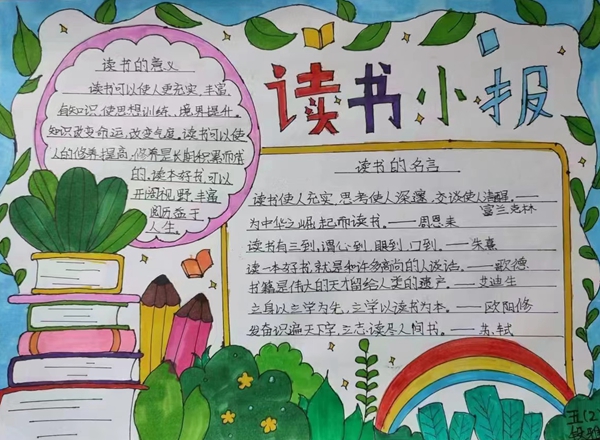 读书小报
读书的意义
读书可以使人更充实,丰富
自知识,使思想训练,境界提升。
知识改变命运,改变气度,读书可以使
人的修养提高,修养是长期积累而成
的,读本好书,可以
开阔视野,丰富
阅历益于
人生。
读书的名言
读书使人充实,思考使人深邃,交谈使人清醒。——
富兰克林
为中华之崛起而读书。——周恩来
读书有三到,谓心到,眼到,口到。——朱熹
读一本好书,就是和许多高尚的人谈话。——歌德
书籍是伟人的天才留给人类的遗产。——艾迪生
立身以立学为先,立学以读书为本。——欧阳修
发奋识遍天下字,立志读尽人间书。——苏轼
五(2)